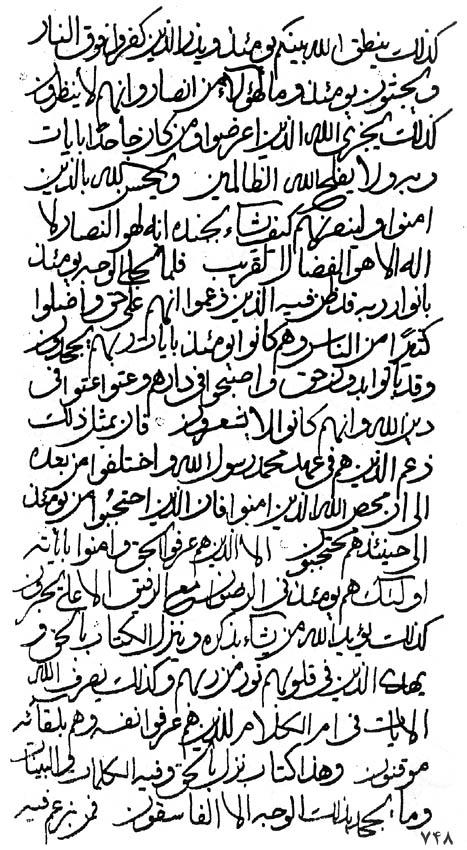 كذلك ينطق الله بينكم يومئذ ويذر الذين كفروا فوق النار
ويجثون يومئذ وما لهؤلاء من انصار وانهم لا ينظرون
كذلك يجزى الله الذين اعرضوا ومن كان جاحدا بايات
ربه ولا يفلح الله الظالمين ويحسن لله بالذين
امنوا ولينصرنهم كيف شاء بجنده انه لهو النصار لا
اله الا هو الفضال القريب فلما تجلى الوجه يومئذ
بانوار ربه قد ظن فيه الذين زعموا انهم على حق واضلوا
كثيرا من الناس وهم كانوا يومئذ بايات ربهم يجحدون
وقد باتوا بدون حق واصبحوا فى دارهم وعتوا عتوا فى
دين الله وانهم كانوا لا يشعرون فان بمثل ذلك
زعم الذين هم فى عهد محمد رسول الله واختلفوا من بعده
الى ان محص الله الذين امنوا فان الذين احتجبوا من يومئذ
الى حينئذ هم محتجبون الا الذين هم عرفوا الحق وامنوا باياته
اولئك هم يومئذ فى الرضوان مع الرفيق الاعلى يحبرون
كذلك يؤيد الله من يشاء بذكره وينزل الكتاب بالحق و
يهدى الذين فى قلوبهم نور من ربهم وكذلك يصرف الله
الايات فى امر الكلام للذين هم عرفوا نفسه وهم بلقائه
موقنون وهذا كتاب نزل بالحق وفيه الكلمات فى البينات
وما يجحد بذلك الوجه الا الفاسقون فمن يزعم فيه
۷۴۸